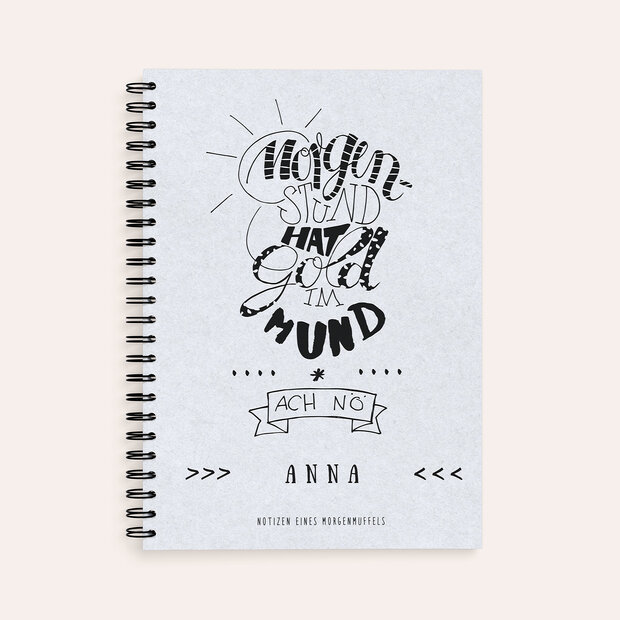 Morgen-
STUND
HAT
Gold
IM
MUND
*
ACH NÖ
>>> ANNA <<<
NOTIZEN EINES MORGENMUFFELS